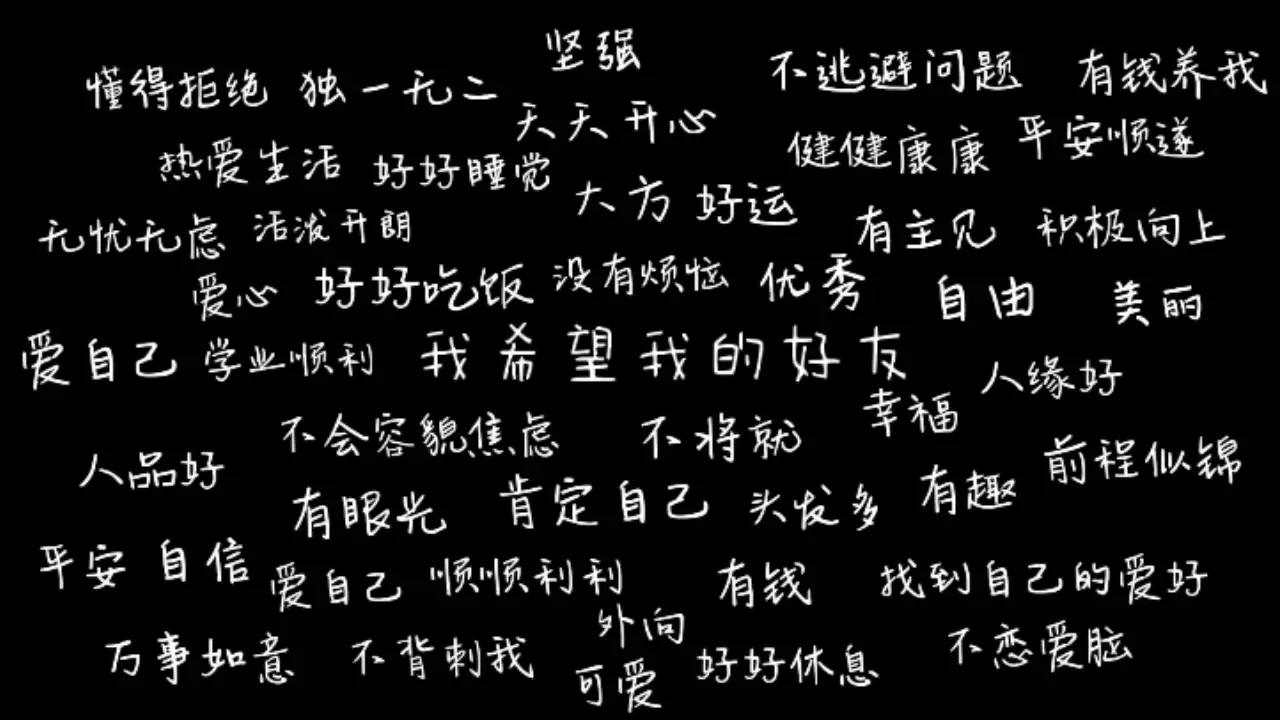 坚强
懂得拒绝 独一无二 不逃避问题 有钱养我
天天开心
热爱生活 好好睡觉 健健康康 平安顺遂
大方 好运
无忧无虑 活泼开朗 有主见 积极向上
爱心 好好吃饭 没有烦恼 优秀 自由 美丽
爱自己 学业顺利 我希望我的好友
人缘好
不会容貌焦虑 不将就 幸福
人品好 前程似锦
有眼光 肯定自己 头发多 有趣
平安 自信 爱自己 顺顺利利 有钱 找到自己的爱好
外向
万事如意 不背刺我 好好休息 不恋爱脑
可爱